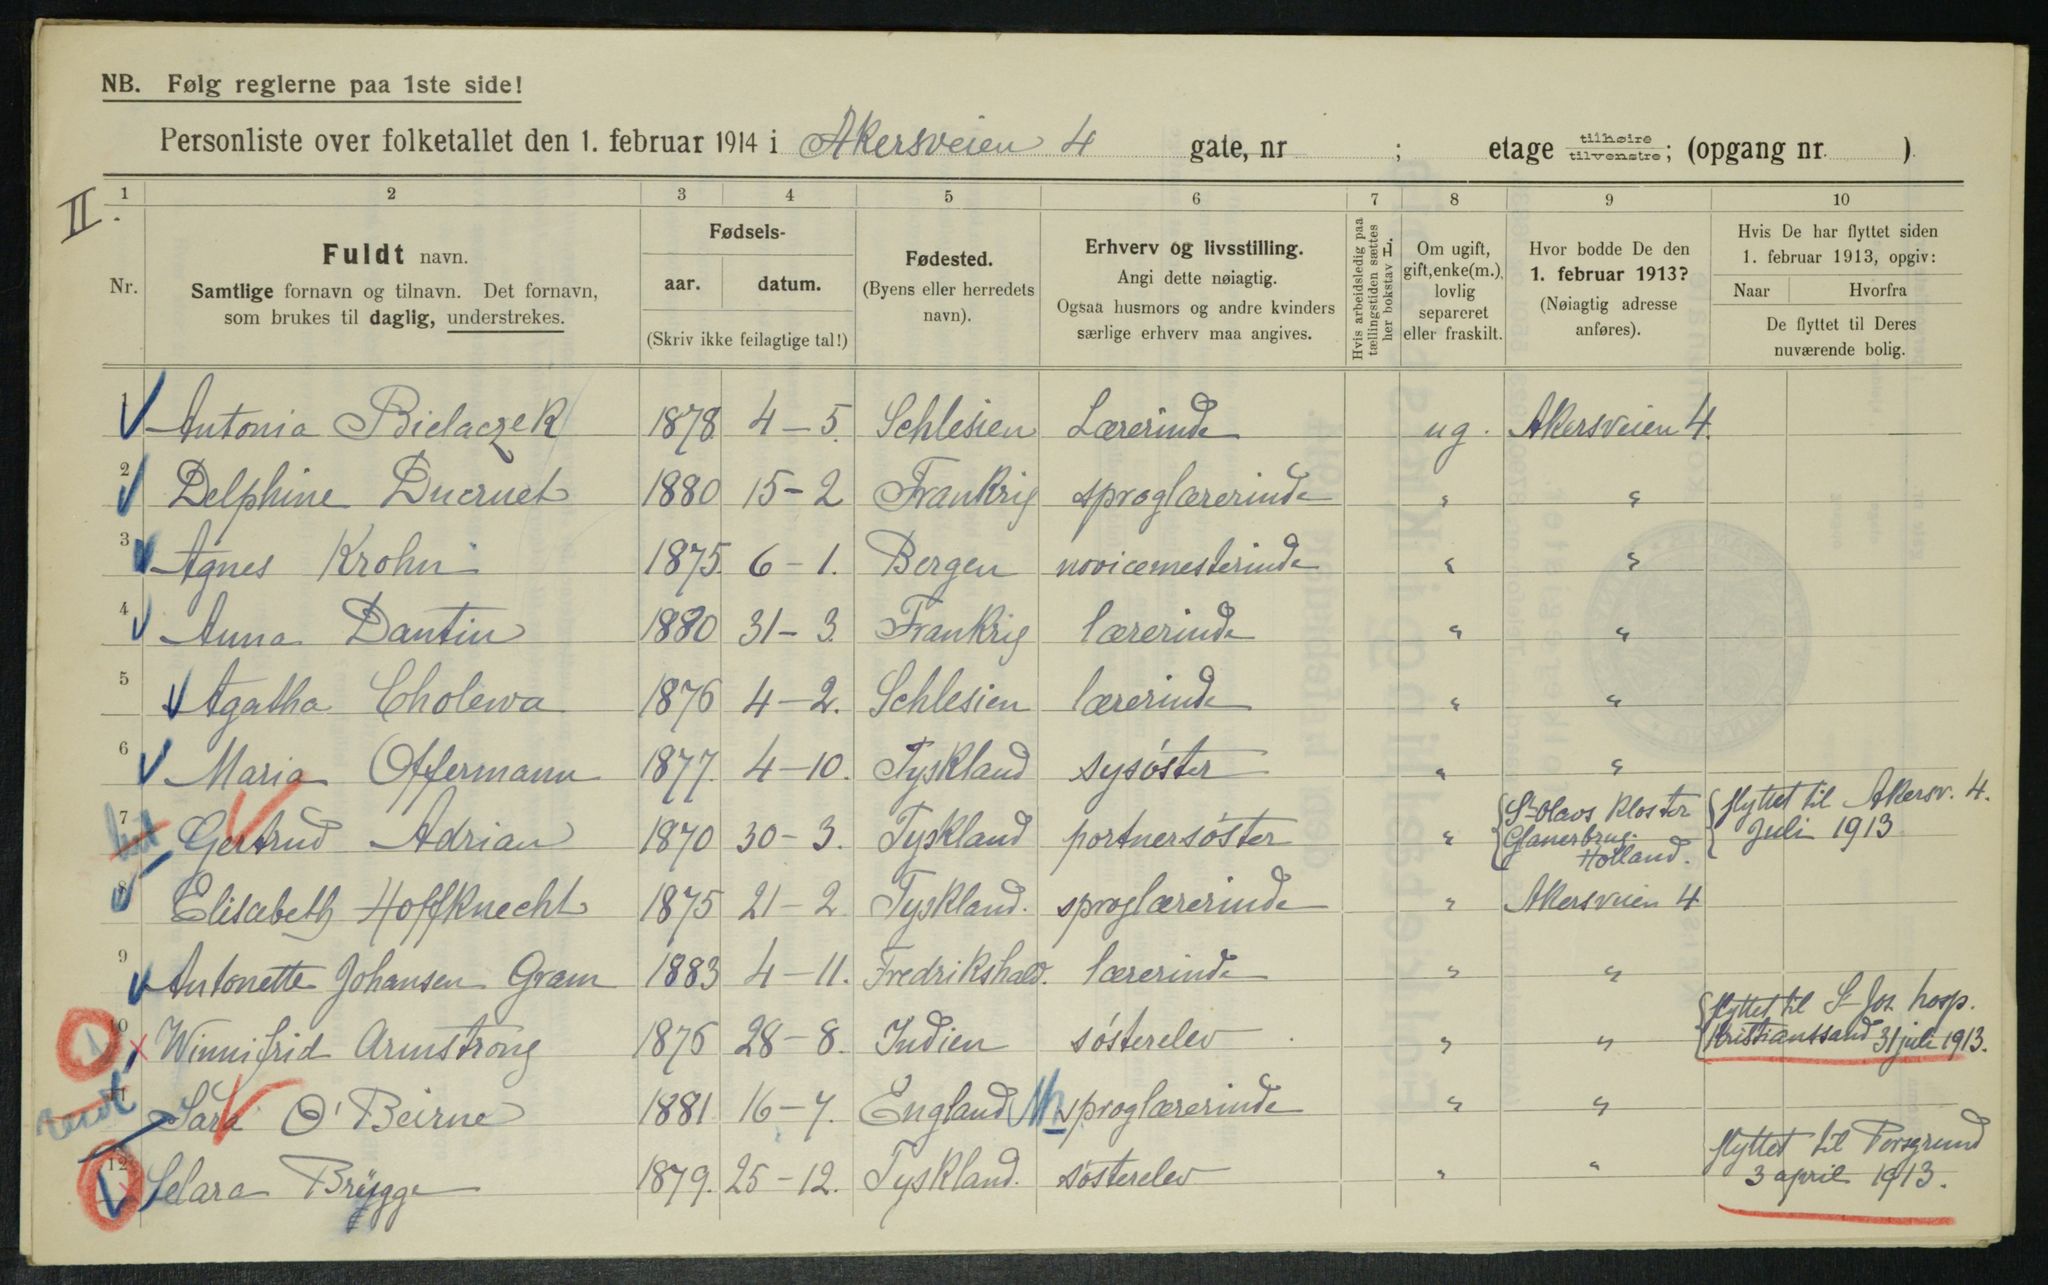 NB. Følg reglerne paa 1ste side!
Personliste over folketallet den 1. februar 1914 i Akersveien 4 gate, nr ; etage tilhøire tilvenstre; (opgang nr. ).
II.
1 2 3 4 5 6 7 8 9 10
Nr.
Fuldt navn.
Samtlige fornavn og tilnavn. Det fornavn,
som brukes til daglig, understrekes.
Fødsels-
aar. datum.
(Skriv ikke feilagtige tal!)
Fødested.
(Byens eller herredets
navn).
Erhverv og livsstilling.
Angi dette nøiagtig.
Ogsaa husmors og andre kvinders
særlige erhverv maa angives.
Hvis arbeidsledig paa
tællingstiden sættes
her bokstav L.
Om ugift,
gift, enke(m.),
lovlig
separeret
eller fraskilt.
Hvor bodde De den
1. februar 1913?
(Nøiagtig adresse
anføres).
Hvis De har flyttet siden
1. februar 1913, opgiv:
Naar Hvorfra
De flyttet til Deres
nuværende bolig.
1 Antonia Bielaczek 1878 4-5. Schlesien Lærerinde ug. Akersveien 4.
2 Delphine Ducruet 1880 15-2 Frankrig sproglærerinde " "
3 Agnes Krohn 1875 6-1. Bergen novicemesterinde " "
4 Anna Dantin 1880 31-3. Frankrig lærerinde " "
5 Agatha Cholewa 1876 4-2. Schlesien lærerinde " "
6 Maria Offermann 1877. 4-10. Tyskland sysøster " "
7 Gertrud Adrian 1870 30-3. Tyskland portnersøster " St. Olavs Kloster
Glanerbrug.
Holland. flyttet til Akersv. 4.
Juli 1913
8 Elisabeth Hoffknecht 1875 21-2 Tyskland. sproglærerinde " Akersveien 4
9 Antonette Johansen Gram 1883 4-11. Fredrikshald. lærerinde " "
10 Winnifrid Armstrong 1876 28-8. Indien søsterelev " " flyttet til St Jos. hosp.
Kristianssand 31 juli 1913.
11 Sara O'Beirne 1881. 16-7. England sproglærerinde " "
12 Clara Brügge 1879. 25-12. Tyskland. søsterelev " " flyttet til Porsgrund
3 april 1913.